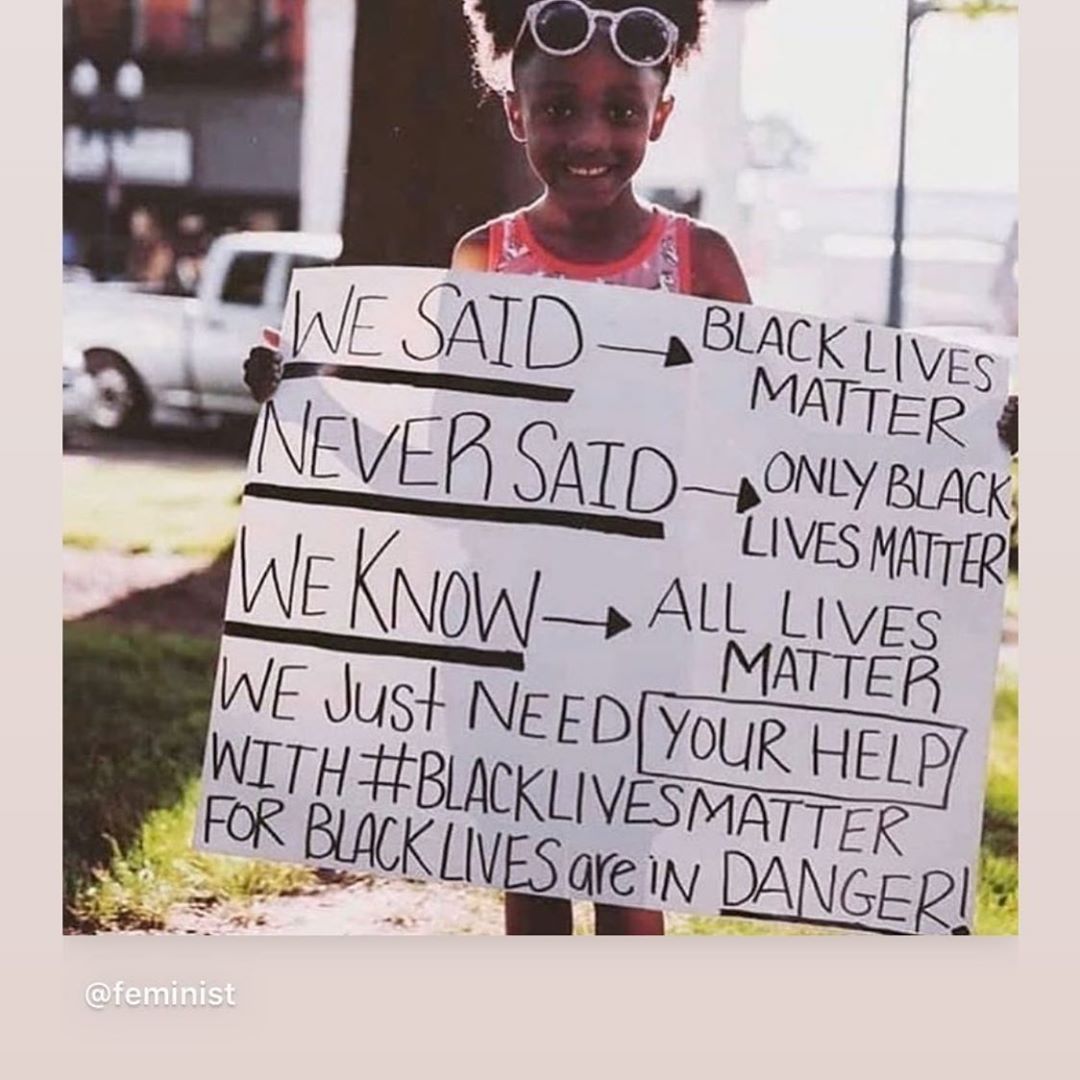 WE SAID → BLACK LIVES
MATTER
NEVER SAID → ONLY BLACK
LIVES MATTER
WE KNOW → ALL LIVES
MATTER
WE Just NEED YOUR HELP
WITH #BLACKLIVESMATTER
FOR BLACK LIVES are iN DANGER!
@feminist